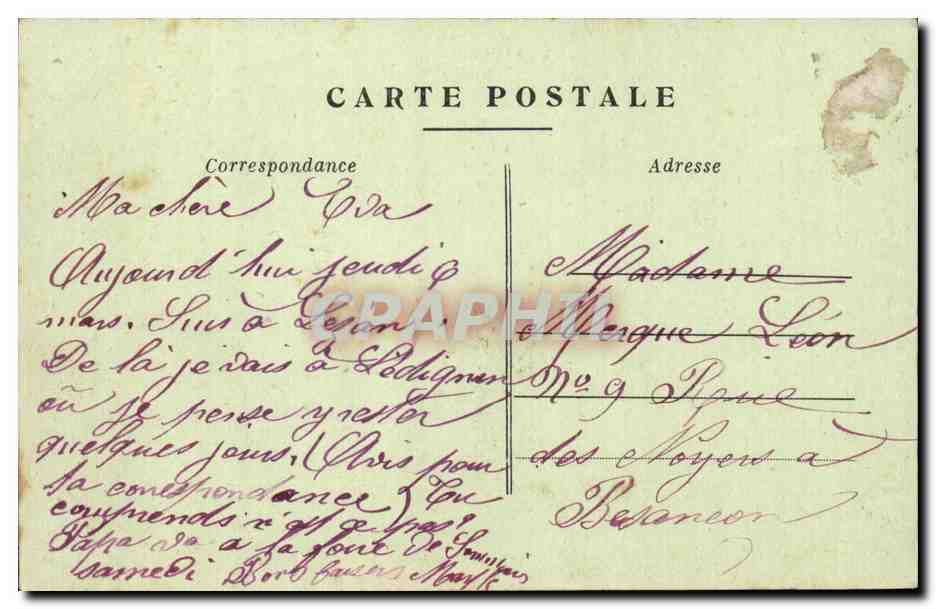 CARTE POSTALE
Correspondance
Ma chère Eva
Aujourd'hui jeudi 6
mars. Suis à Lesan
De là je vais à Lédignan
où je pense y rester
quelques jours. (Avis pour
ta correspondance) Tu
comprends n'est ce pas?
Papa va à la foire de
samedi Bons baisers
Adresse
Madame
Mergue Léon
No 9 Rue
des Noyers à
Besancon
CPAPHIL